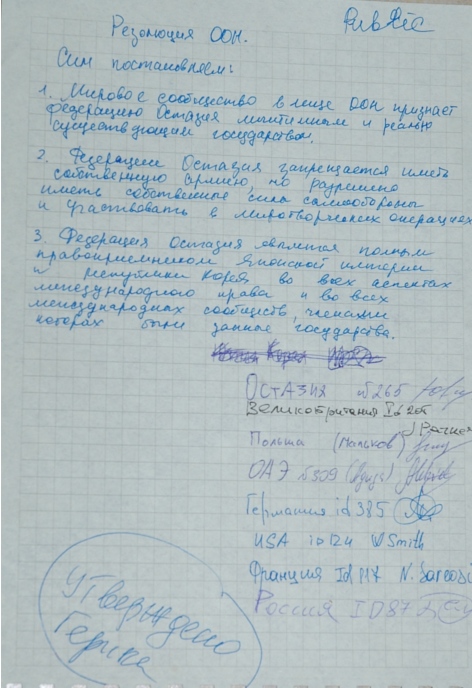 Public
Резолюция ООН.
Сим постановляем:
1. Мировое сообщество в лице ООН признает
Федерацию Остазия легитимным и реально
существующим государством.
2. Федерации Остазия запрещается иметь
собственную армию, но разрешено
иметь собственные силы самообороны
и участвовать в миротворческих операциях
3. Федерация Остазия является полным
правоприемником Японской империи
и республики Корея во всех аспектах
международного права и во всех
международных сообществ, членами
которых были данные государства.
Остазия №265
Великобритания Id 201
Польша (Мальков)
ОАЭ №309
Германия id 385
USA ID124 W Smith
Франция Id 117 N. Sarcosi
Россия ID87
Утверждено
Герика